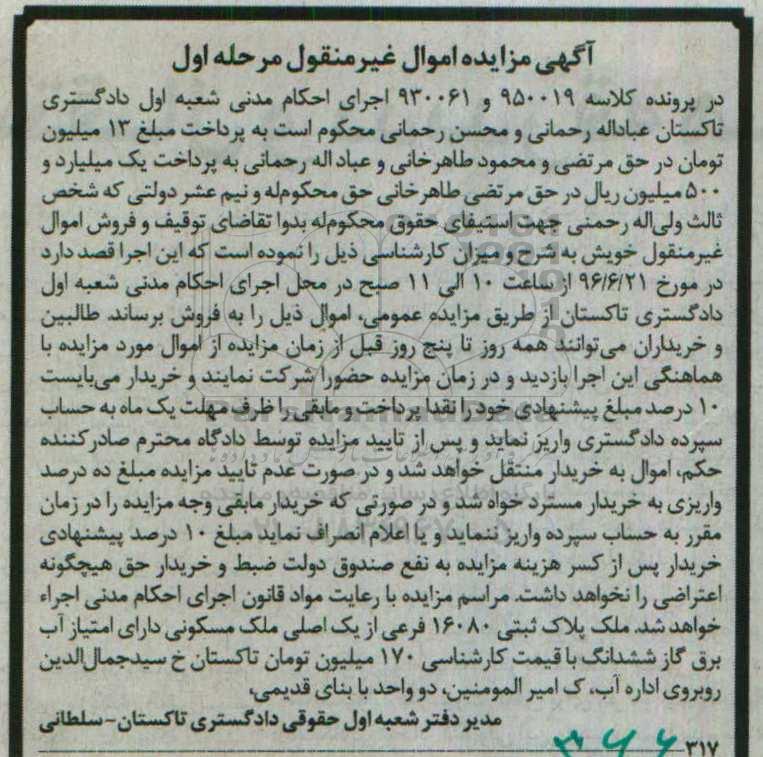 آگهی مزایده اموال غیرمنقول مرحله اول
در پرونده کلاسه ۹۵۰۰۱۹ و ۹۳۰۰۶۱ اجرای احکام مدنی شعبه اول دادگستری
تاکستان عباداله رحمانی و محسن رحمانی محکوم است به پرداخت مبلغ ۱۳ میلیون
تومان در حق مرتضی و محمود طاهرخانی و عباد اله رحمانی به پرداخت یک میلیارد و
۵۰۰ میلیون ریال در حق مرتضی طاهرخانی حق محکوم‌له و نیم عشر دولتی که شخص
ثالث ولی‌اله رحمنی جهت استیفای حقوق محکوم‌له بدوا تقاضای توقیف و فروش اموال
غیرمنقول خویش به شرح و میزان کارشناسی ذیل را نموده است که این اجرا قصد دارد
در مورخ ۹۶/۶/۲۱ از ساعت ۱۰ الی ۱۱ صبح در محل اجرای احکام مدنی شعبه اول
دادگستری تاکستان از طریق مزایده عمومی، اموال ذیل را به فروش برساند. طالبین
و خریداران می‌توانند همه روز تا پنج روز قبل از زمان مزایده از اموال مورد مزایده با
هماهنگی این اجرا بازدید و در زمان مزایده حضورا شرکت نمایند و خریدار می‌بایست
۱۰ درصد مبلغ پیشنهادی خود را نقدا پرداخت و مابقی را ظرف مهلت یک ماه به حساب
سپرده دادگستری واریز نماید و پس از تایید مزایده توسط دادگاه محترم صادرکننده
حکم، اموال به خریدار منتقل خواهد شد و در صورت عدم تایید مزایده مبلغ ده درصد
واریزی به خریدار مسترد خواه شد و در صورتی که خریدار مابقی وجه مزایده را در زمان
مقرر به حساب سپرده واریز ننماید و یا اعلام انصراف نماید مبلغ ۱۰ درصد پیشنهادی
خریدار پس از کسر هزینه مزایده به نفع صندوق دولت ضبط و خریدار حق هیچگونه
اعتراضی را نخواهد داشت. مراسم مزایده با رعایت مواد قانون اجرای احکام مدنی اجراء
خواهد شد. ملک پلاک ثبتی ۱۶۰۸۰ فرعی از یک اصلی ملک مسکونی دارای امتیاز آب
برق گاز ششدانگ با قیمت کارشناسی ۱۷۰ میلیون تومان تاکستان خ سیدجمال‌الدین
روبروی اداره آب، ک امیر المومنین، دو واحد با بنای قدیمی،
مدیر دفتر شعبه اول حقوقی دادگستری تاکستان-سلطانی
۳۱۷